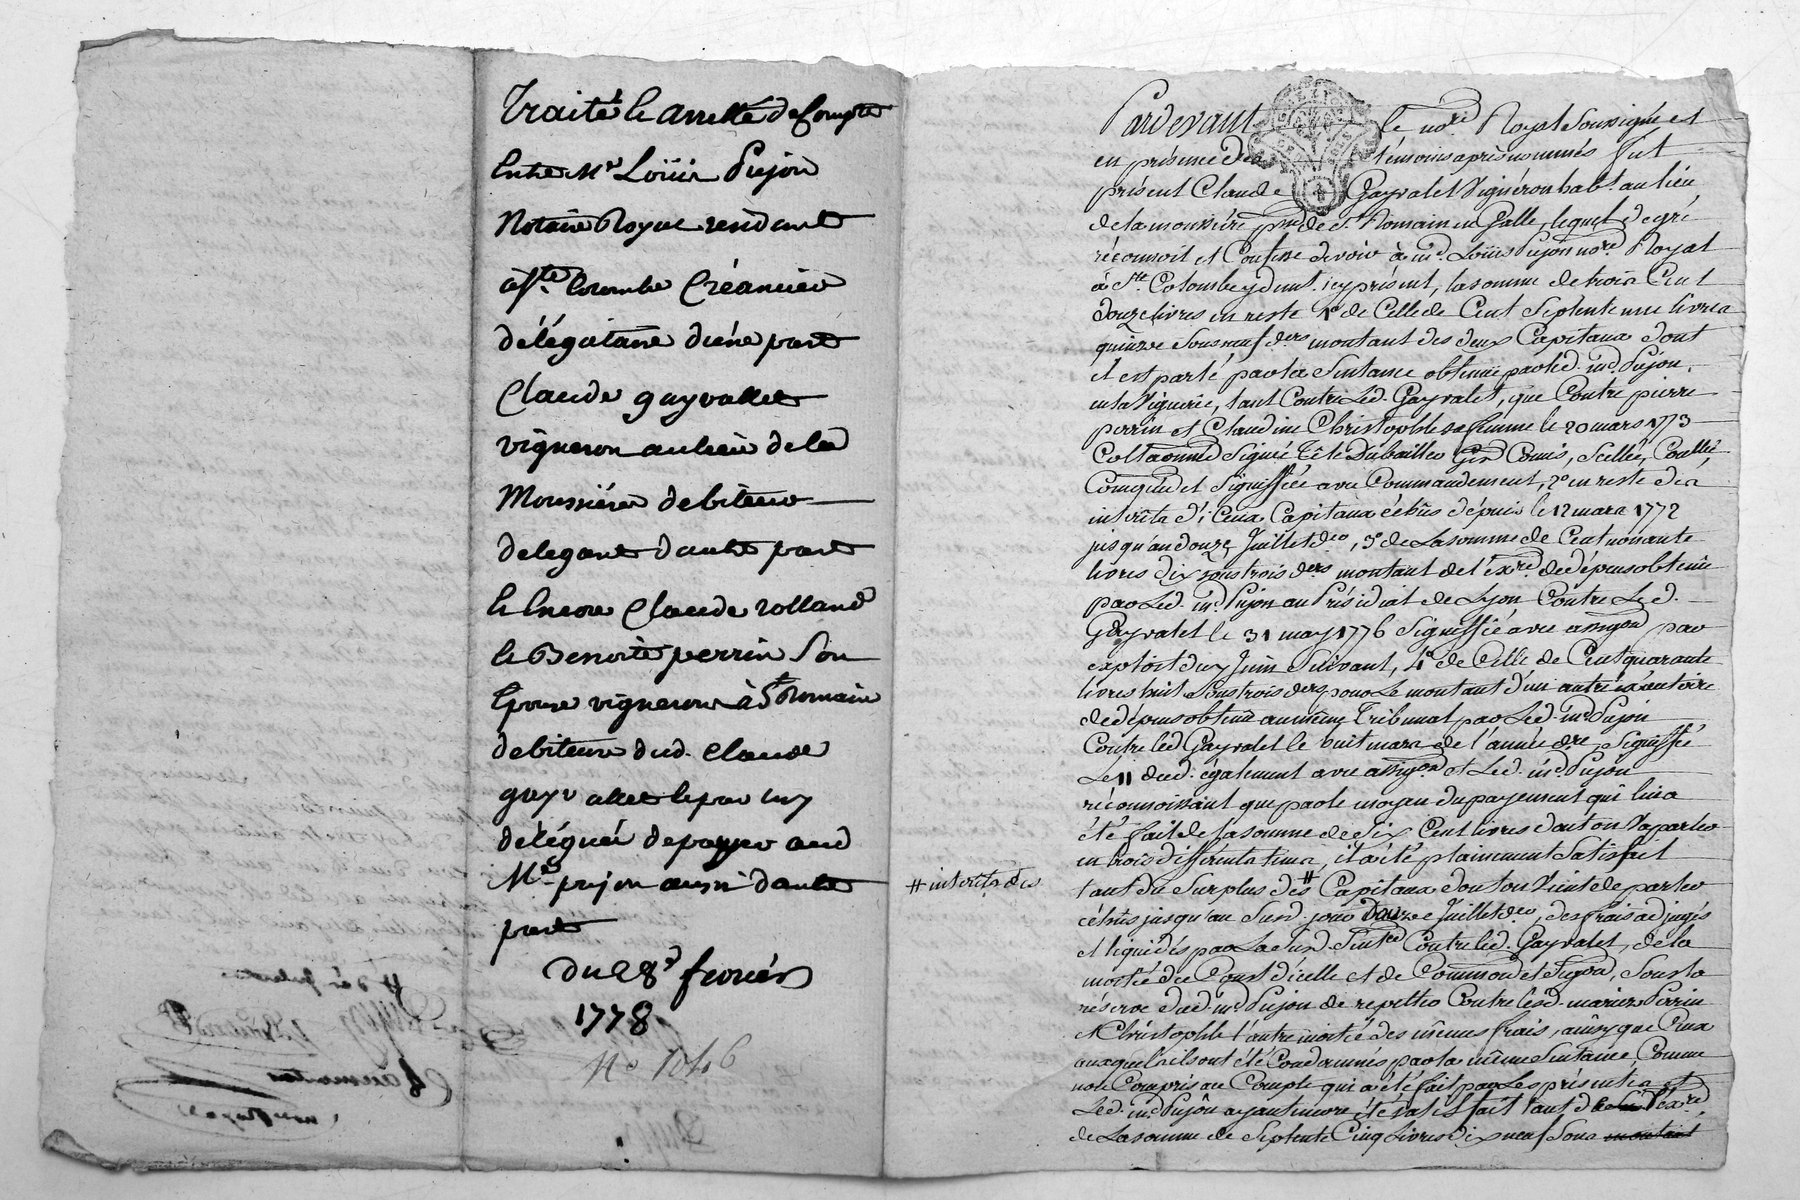 Traité & arretté de Compte
Entre Mr Loüis Pujon
Notaire Royal residant
à Ste Colombe Créancier
délégataire d'une part
Claude gayvallet
vigneron au lieu de la
Moussière debiteur
delegant d'autre part
& Encore Claude rolland
& Benoite perrin Son
Epouse vignerons à St Romain
debiteurs dud. Claude
gayvallet & par luy
délégués de payer aud
Me pujon aussi d'autre
part
du 28e fevrier
1778
No 1046
# interêts des
Pardevant le nore Royal Soussigné et
en présence des témoins après nommés fut
présent Claude Gayvalet Vigneron habt. au lieu
de la moussière psse de St Romain en Galle, lequel de gré
réconnoit et Confesse devoir à me. Loüis Pujon nore Royal
à Ste Colombe y dmt. icy présent, la somme de trois Cent
douze livres en reste 1° de Celle de Cent Septente une livres
quinze Sous neuf ders montant des deux Capitaux dont
il est parlé par la Sentence obtenue par led. me. Pujon,
en la Viguerie, tant Contre Led. Gayvalet, que Contre pierre
perrin et Claudine Christophle sa femme le 20 mars 1773
Collaonné Signé Tête Dubailler Ger Comis, Scellée, Conllée
et Signiffiée avec Commandement, 2° en reste des
interêts d'iceux Capitaux échus dépuis le 12 mars 1772
jusqu'au douze Juillet der, 3° de La somme de Cent nonante
livres dix sous trois ders montant de l'exre de dépens obtenu
par Led. me. Pujon au Présidial de Lyon Contre Led.
Gayvalet le 31 may 1776 Signiffié avec assignon par
exploit du Juin Suivant, 4° de Celle de Cent quarante
livres huit Sous trois ders pour Le montant d'un autre exécutoire
de dépens obtenu au même Tribunal par Led. me. Pujon
Contre led Gayvalet le huit mars de l'année dre, Signiffié
Le 11 dud. également avec assignon et Led. me. Pujon
réconnoissant que par le moyen du payement qui lui a
été fait de la somme de Six Cent livres dont on Va parler
en trois differents tems, il a été plainement Satisfait
tant du Surplus des # Capitaux dont on Vient de parler
échus jusqu'au Susd. jour Douze Juillet der, des frais adjugés
et liquidés par La Susd. Sentce Contre led. Gayvalet, de la
moitié du Coust d'icelle et de Commond et Signon, Sous la
réserve dud. me. Pujon de repetter Contre lesd. mariés Perrin
et Christophle l'autre moitié des mêmes frais, ainsy que Ceux
auxquels ils ont été Condamnés par la même Sentence Comme
non Compris au Compte qui a été fait par Les présentes et
Led. me. Pujon ayant encore été satisfait tant de l'exre
de La somme de Septente Cinq livres dix neuf Sous montant